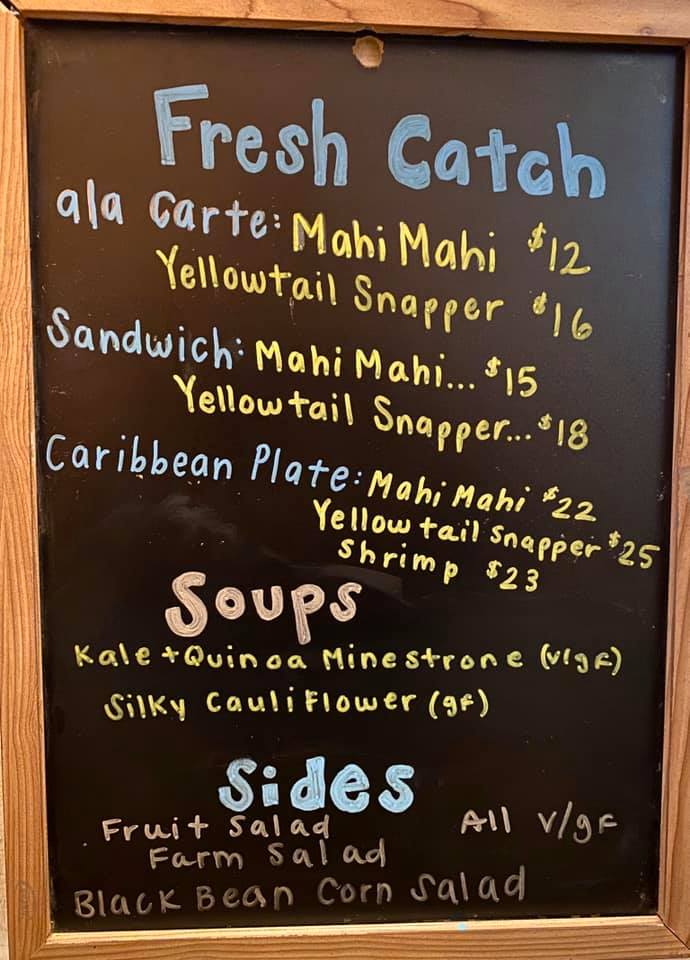 Fresh Catch
ala Carte: Mahi Mahi $12
Yellowtail Snapper $16
Sandwich: Mahi Mahi... $15
Yellowtail Snapper... $18
Caribbean Plate: Mahi Mahi $22
Yellowtail Snapper $25
Shrimp $23
Soups
Kale + Quinoa Minestrone (v/gf)
Silky Cauliflower (gf)
Sides
Fruit Salad All v/gf
Farm Salad
Black Bean Corn Salad